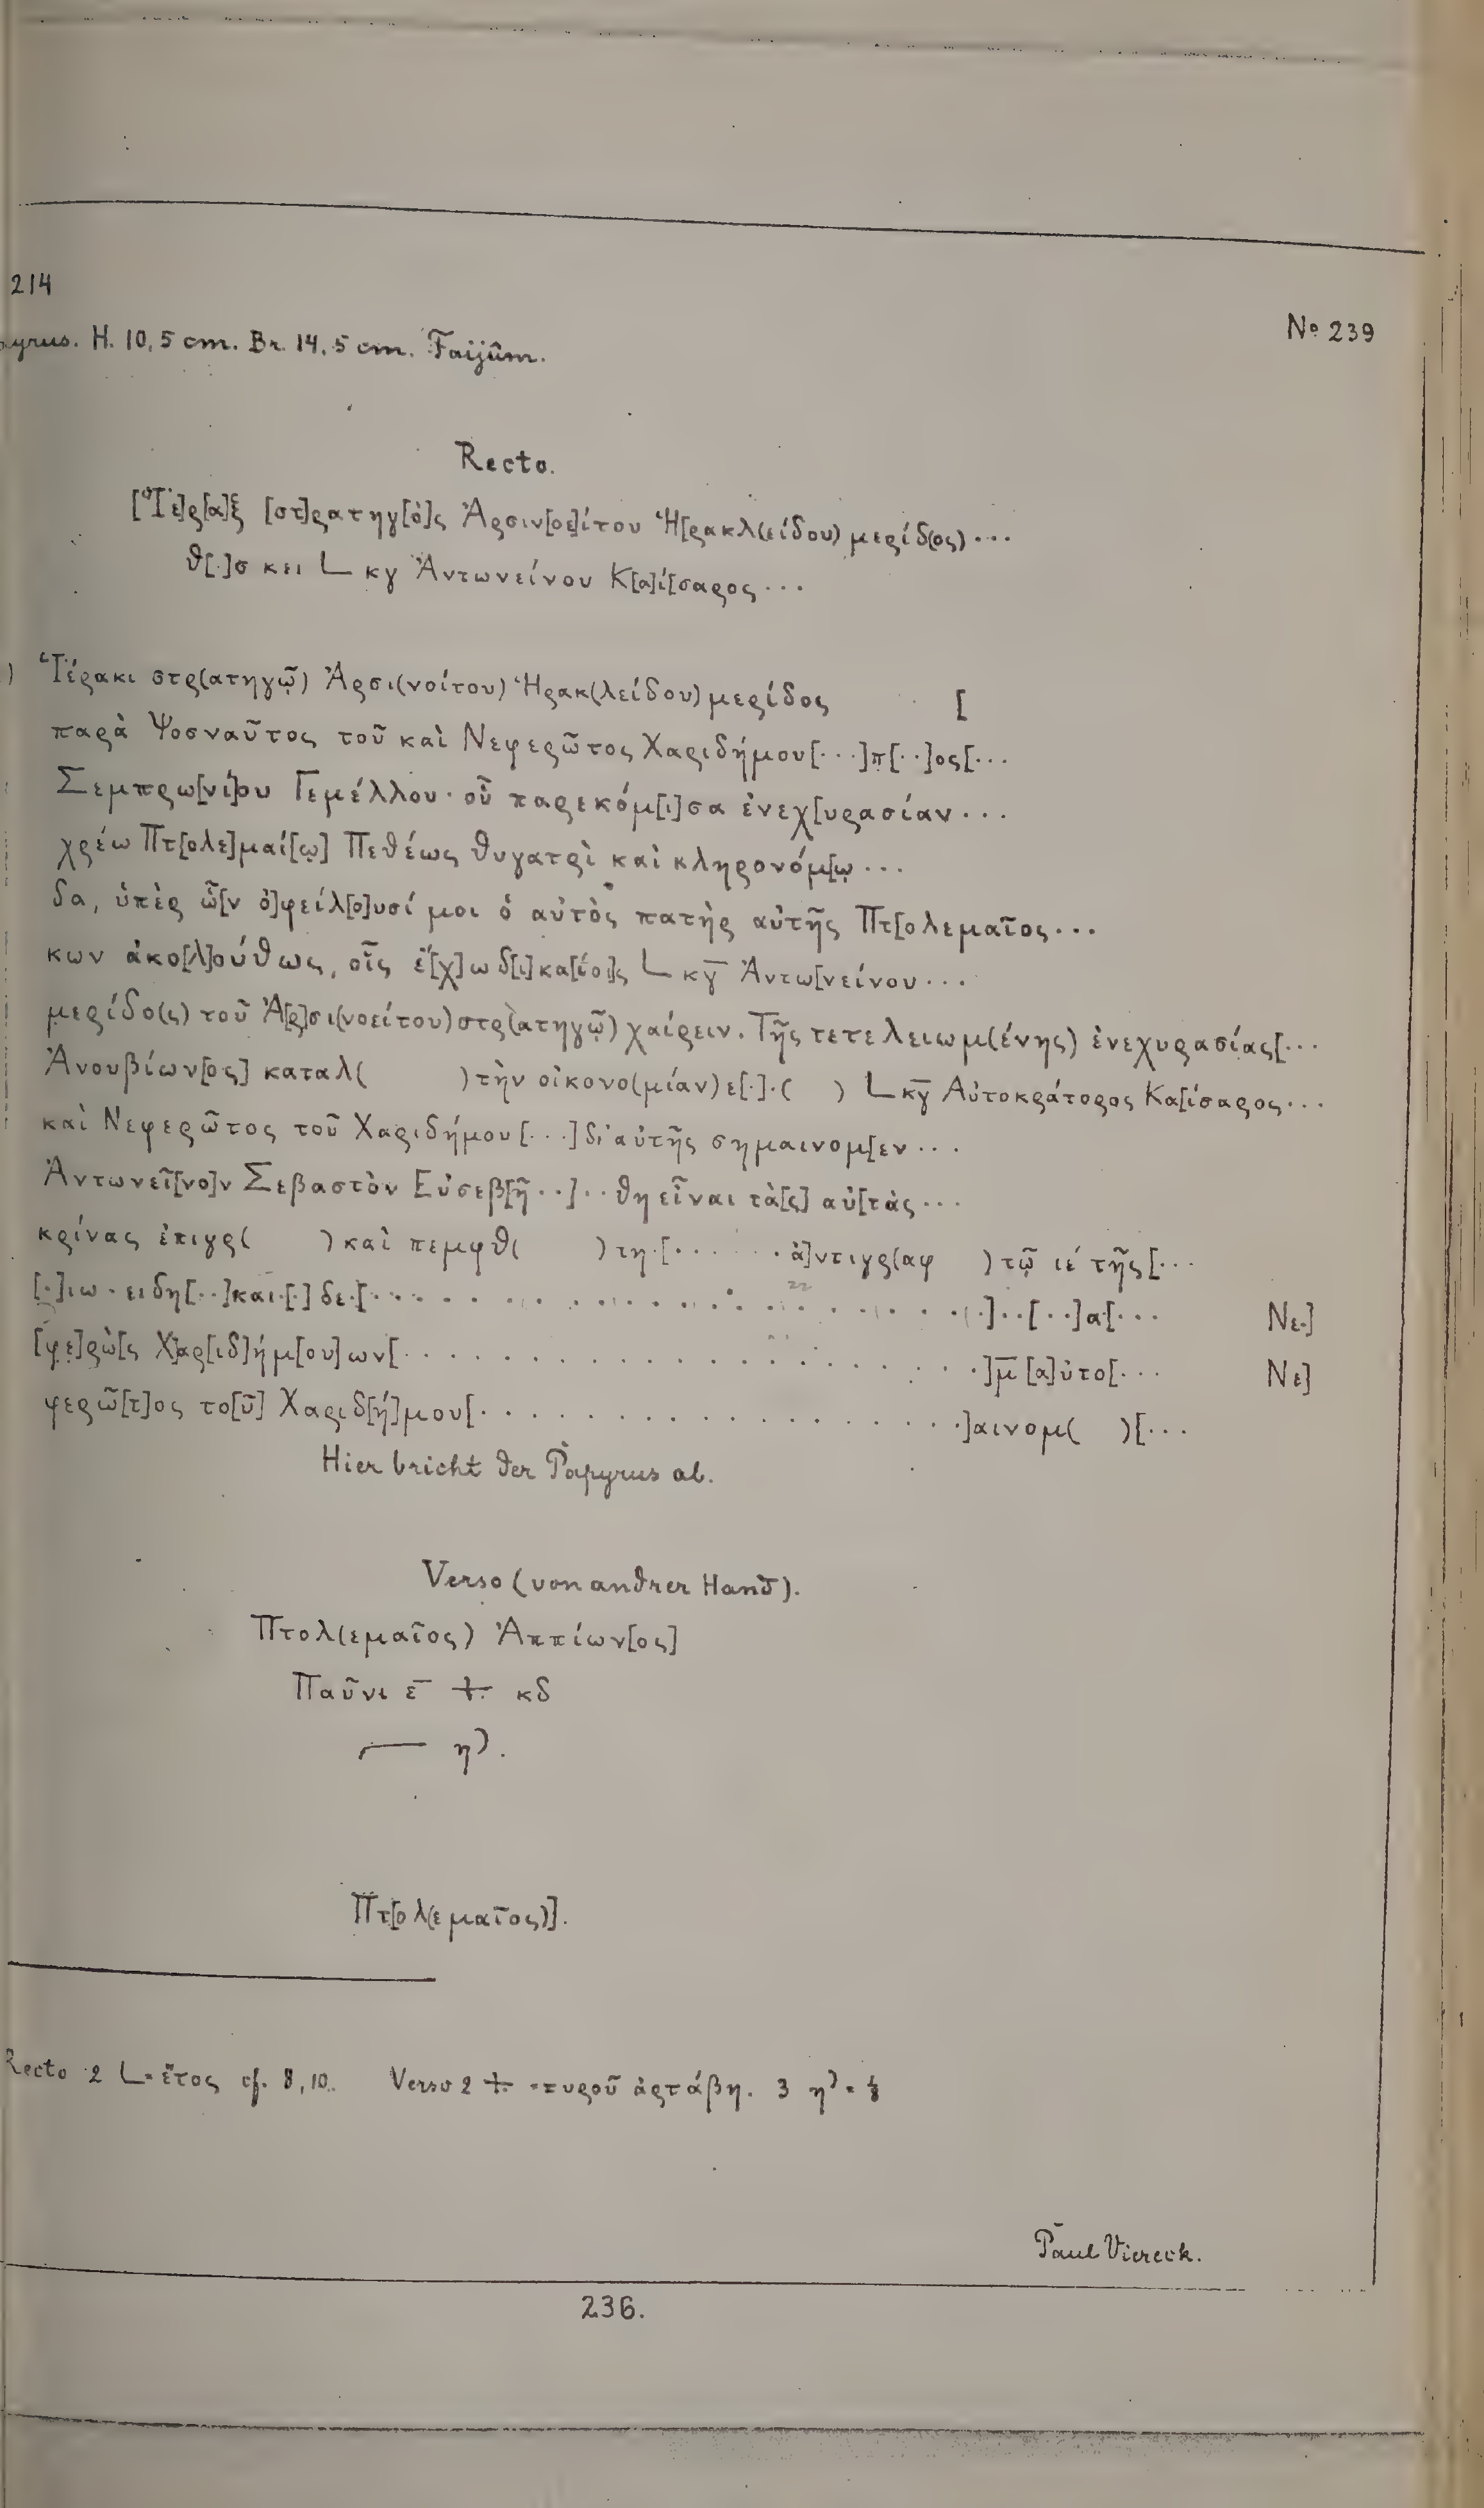 214
Nº 239
pyrus. H. 10,5 cm. Br. 14,5 cm. Faijûm.
Recto.
[Ἱέ]ρ[α]ξ [στ]ρατηγ[ὸ]ς Ἀρσιν[οε]ίτου Ἡ[ρακλ(είδου) μερίδ(ος) ...
θ[.]σ κει L κγ Ἀντωνείνου Κ[α]ί[σαρος ...
) Ἱέρακι στρ(ατηγῷ) Ἀρσι(νοίτου) Ἡρακ(λείδου) μερίδος [
παρὰ Ψοσναῦτος τοῦ καὶ Νεφερῶτος Χαριδήμου[...]π[..]ος[...
Σεμπρω[νί]ου Γεμέλλου· οὗ παρεκόμ[ι]σα ἐνεχ[υρασίαν ...
χρέω Πτ[ολε]μαί[ῳ] Πεθέως θυγατρὶ καὶ κληρονόμ[ῳ ...
δα, ὑπὲρ ὧ[ν ὀ]φείλ[ο]υσί μοι ὁ αὐτὸς πατὴρ αὐτῆς Πτ[ολεμαῖος ...
κων ἀκο[λ]ούθως, οἷς ἔ[χ]ω δ[ι]κα[ίοι]ς L κγ̅ Ἀντω[νείνου ...
μερίδο(ς) τοῦ Ἀ[ρ]σι(νοείτου) στρ(ατηγῷ) χαίρειν. Τῆς τετελειωμ(ένης) ἐνεχυρασίας[...
Ἀνουβίων[ος] καταλ( ) τὴν οἰκονο(μίαν) ε[.].( ) L κγ̅ Αὐτοκράτορος Κα[ίσαρος ...
καὶ Νεφερῶτος τοῦ Χαριδήμου[...] δι' αὐτῆς σημαινομ[εν ...
Ἀντωνεῖ[νο]ν Σεβαστὸν Εὐσεβ[ῆ ..]..θη εἶναι τὰ[ς] αὐ[τὰς ...
κρίνας ἐπιγρ( ) καὶ πεμφθ( ) τη.[....... ἀ]ντιγρ(αφ ) τῷ ιέ τῆς[...
[.]ιω.ειδη[..]και.[.]δε.[....................]..[..]α[... Νε]
[φε]ρὼ[ς Χ]αρ[ιδ]ήμ[ου] ων[....................]μ̅ [α]ὐτο[... Νε]
φερῶ[τ]ος το[ῦ] Χαριδ[ή]μου[....................]αινομ( )[...
Hier bricht der Papyrus ab.
Verso (von andrer Hand).
Πτολ(εμαῖος) Ἀππίων[ος]
Παῦνι ε̅ ∸ κδ
— η).
Πτ[ολ(εμαῖος)].
Recto 2 L = ἔτος cf. 8, 10. Verso 2 ∸ = πυροῦ ἀρτάβη. 3 η) = ⅛
Paul Viereck.
236.